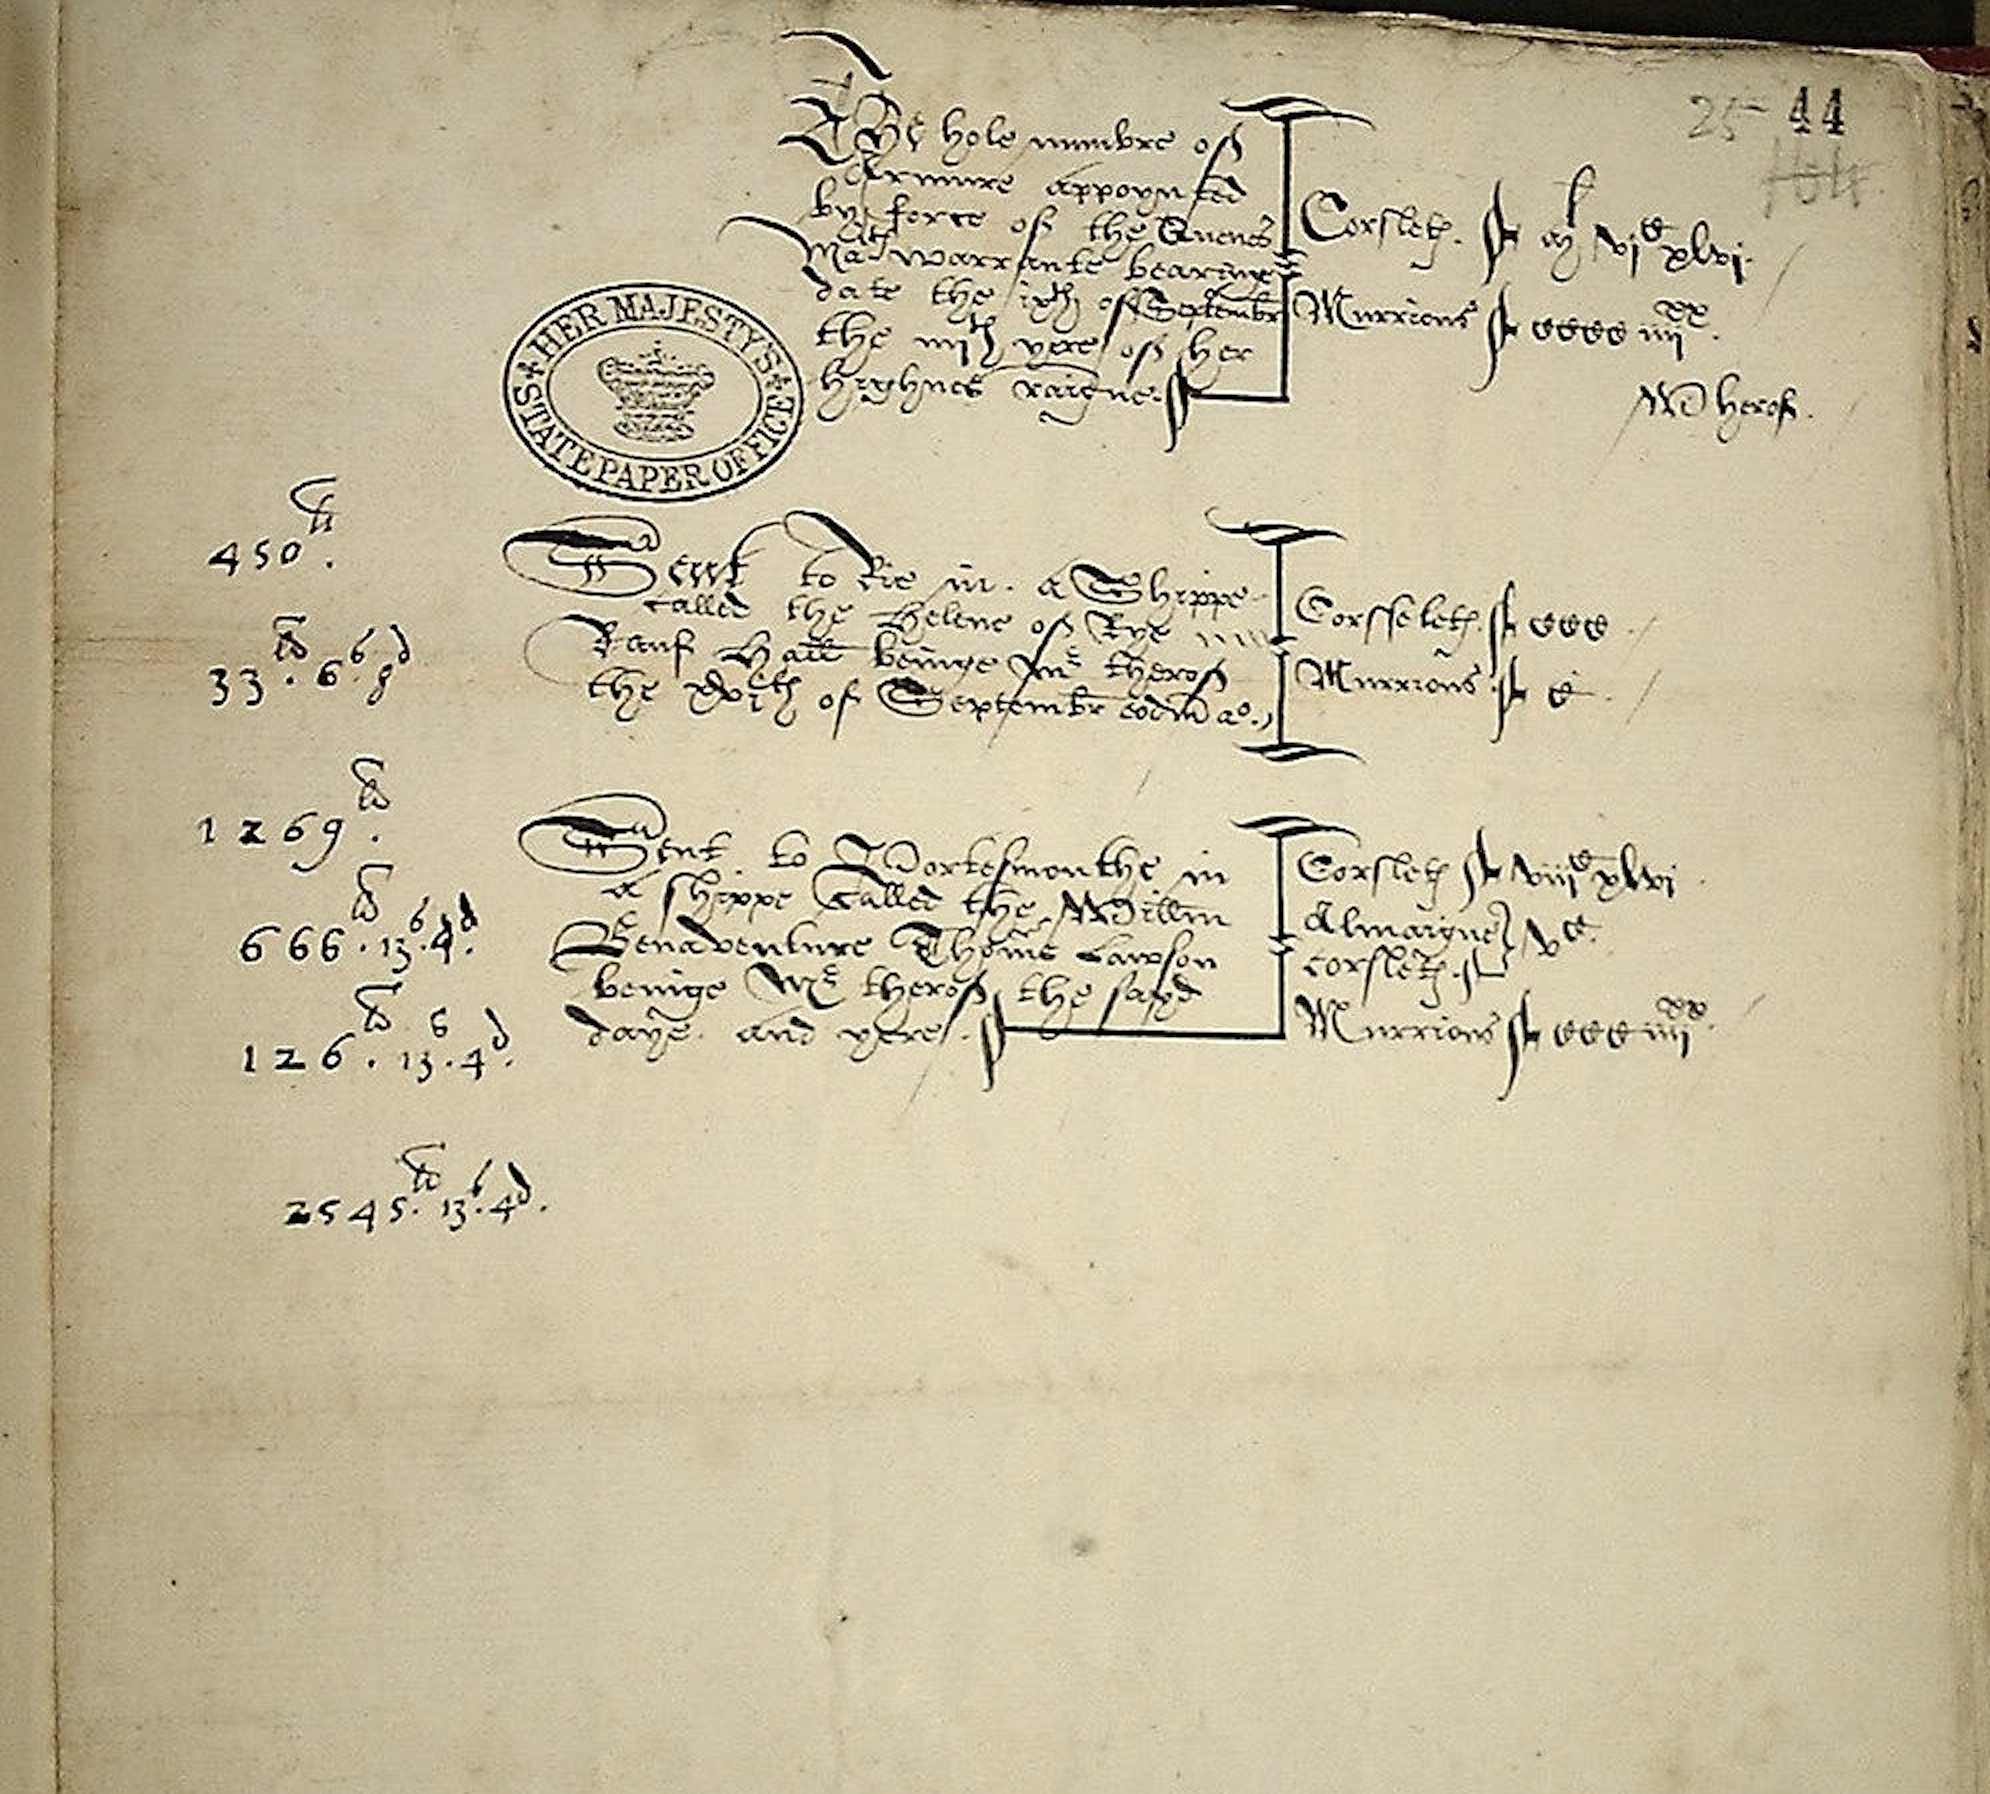 25 44
The hole numbre of
Armure appoynted
by force of the Quenes
Ma^ts warrante bearinge
date the ix^th of Septembr
the iiii^th yere of her
highnes raigne.
Corslet(es). vi^c xlvi.
Murrions cccc iiii^xx.
Wherof.
HER MAJESTY'S
STATE PAPER OFFICE
450^li.
33^li. 6^s. 8^d
Sent to Rie in a Shippe
called the Helene of Rye
Rauf Hall beinge M^r therof
the xvi^th of Septembr eodm a^o.
Corsselet(es). ccc
Murrions. c.
1269^li.
666^li. 13^s. 4^d.
126^li. 13^s. 4^d.
Sent to Portesmouthe in
a shippe called the Willm
Bonaventure Thoms Lawson
beinge M^r therof the sayd
daye and yere.
Corslet(es) viii^c xlvi
Almaigne
corslet(es). v^c.
Murrions ccc iiii^xx.
2545^li. 13^s. 4^d.